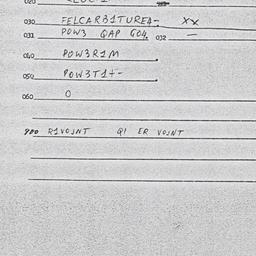 020
030 FELCARB1TUREA- XX
031 POW3 GAP GO4. 032 —
040 POW3R1M
050 POW3T1+-
060 0
900 R1VOJNT QI ER VOJNT